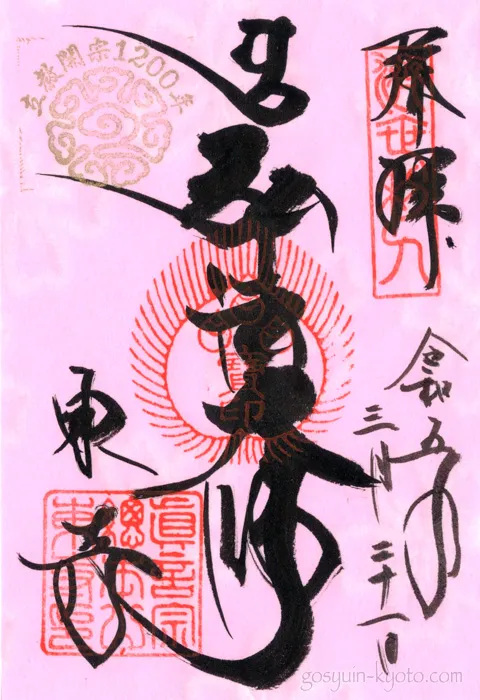 奉拝
令和五年
三月二十一日
弘法大師
立教開宗1200年
東寺
眞言宗
總本山
gosyuin-kyoto.com